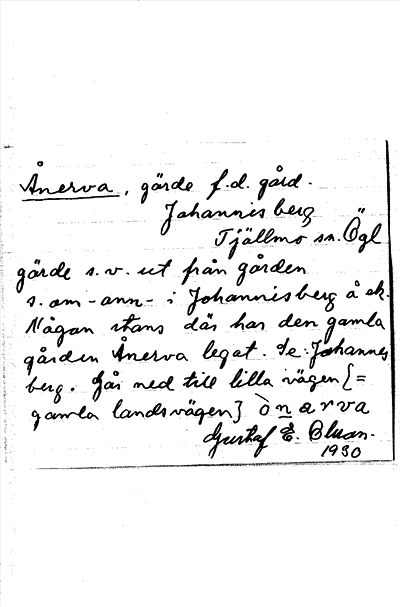 Ånerva, gärde f.d. gård.
Johannisberg
Tjällmo sn. Ögl
gärde s.v. ut från gården
s. om - ann - i Johannisberg å ek.
Någan stans där har den gamla
gården Ånerva legat. Se: Johannes
berg. Går ned till lilla vägen [=
gamla landsvägen] ònarva
Gustaf E.
1930